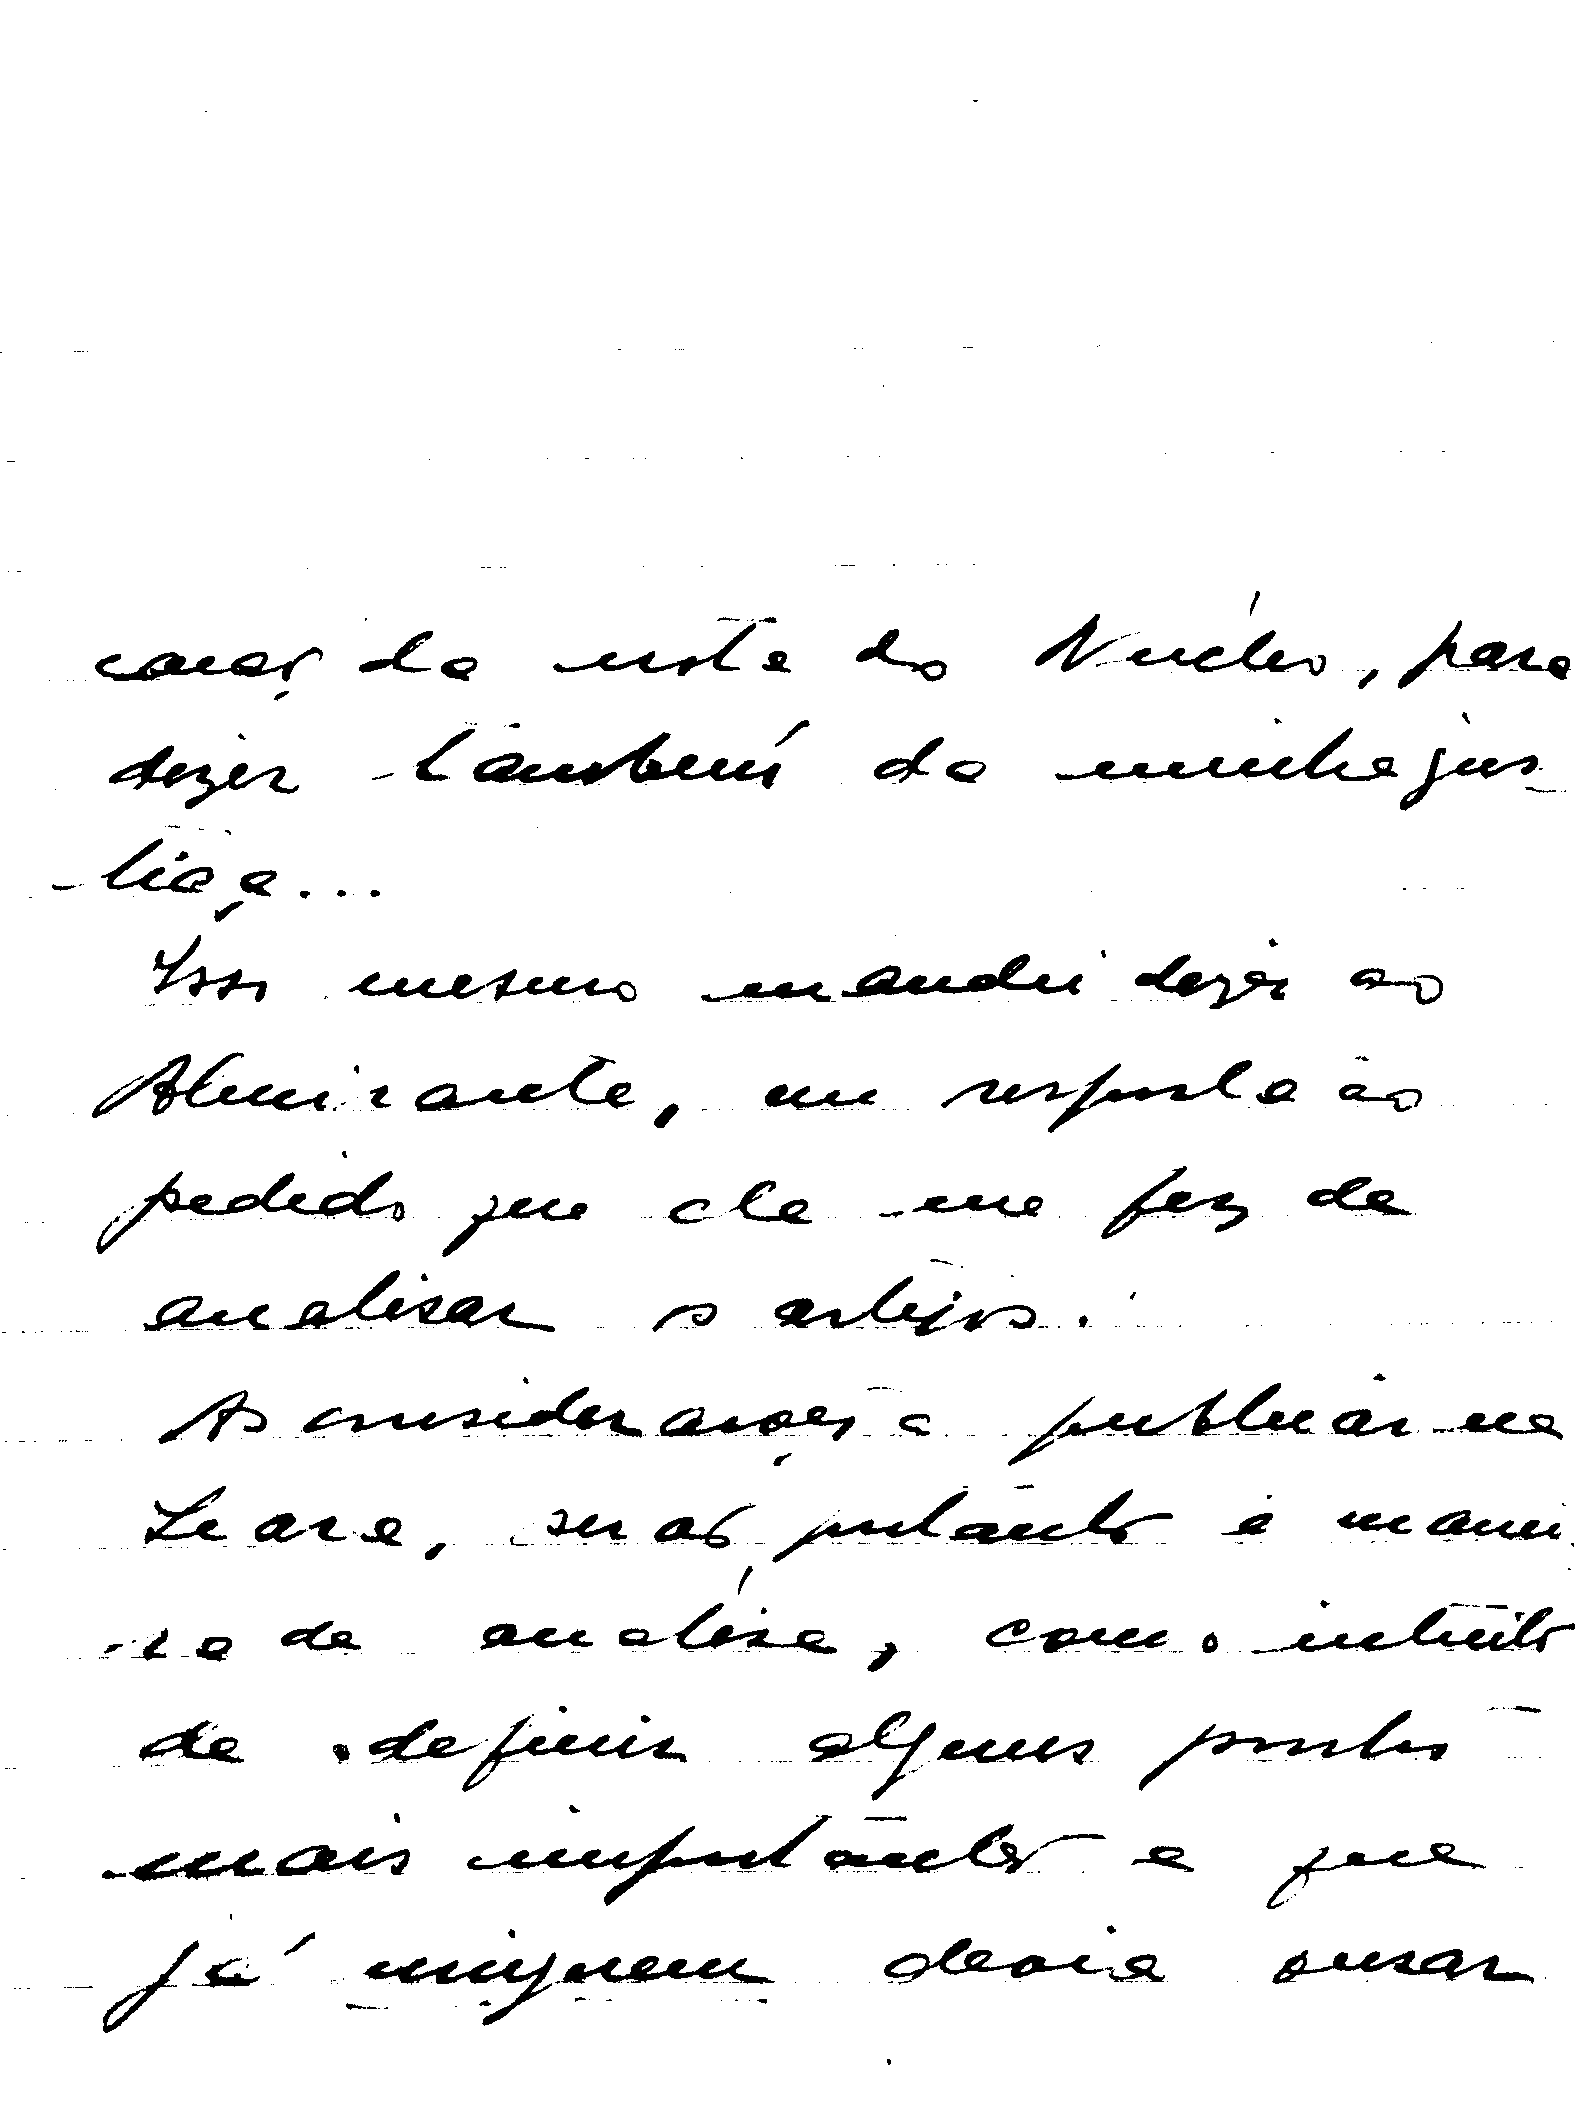 da nota do Núcleo, para
dizer também da minha jus-
tiça...
Isso mesmo mandei dizer ao
Almirante, em resposta ao
pedido que ele me fez de
analisar os artigos.
As considerações a publicar na
Seara, serão portanto à manei
ra de análise, com o intuito
de definir alguns pontos
mais importantes e que
já ninguem devia ousar